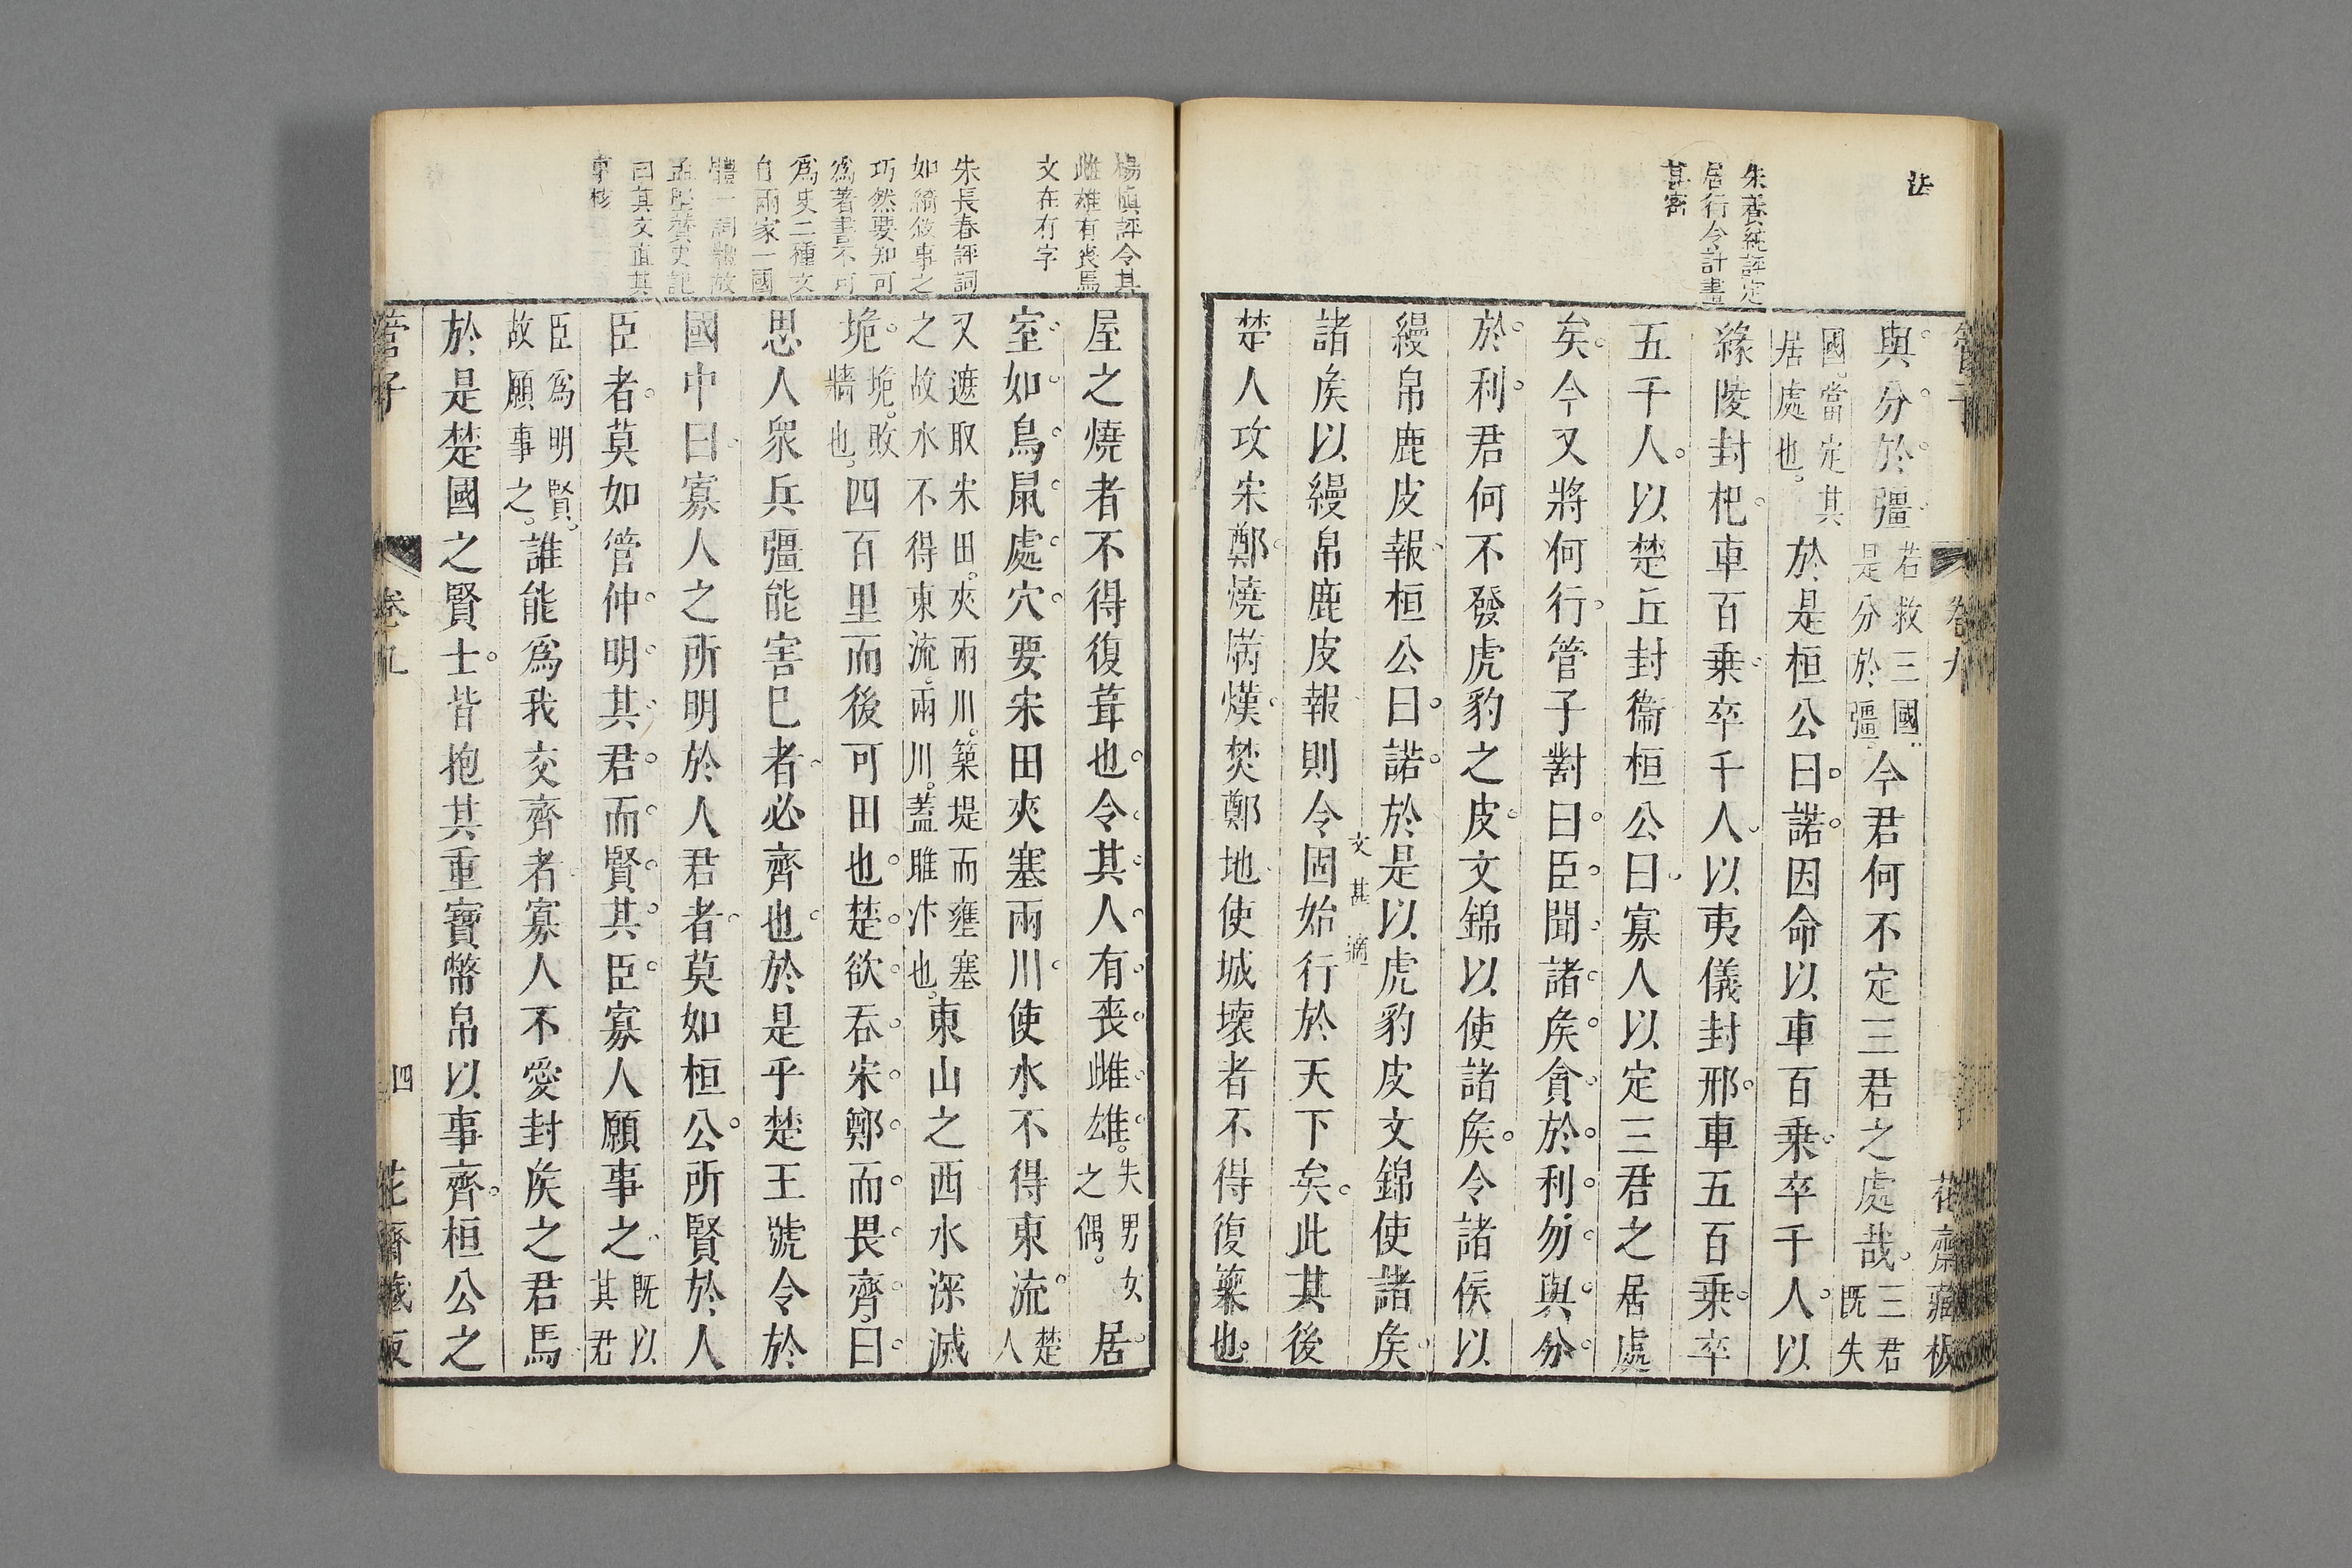 法
朱養純評定
居行令計畫
甚密
管子
卷九
花齋藏板
與分於彊若救三國是分於彊今君何不定三君之處哉三君既失
國當定其居處也於是桓公曰諾因命以車百乗卒千人以
緣陵封杞車百乗卒千人以夷儀封邢車五百乗卒
五千人以楚丘封衞桓公曰寡人以定三君之居處
矣今又將何行管子對曰臣聞諸矦貪於利勿與分
於利君何不發虎豹之皮文錦以使諸矦令諸侯以
縵帛鹿皮報桓公曰諾於是以虎豹皮文錦使諸矦
文甚適
諸矦以縵帛鹿皮報則令固始行於天下矣此其後
楚人攻宋鄭燒焫熯焚鄭地使城壞者不得復築也
楊慎評令其
雌雄有喪馬
文在有字
朱長春評詞
如綺敘事之
巧然要知可
為著書不可
爲史二種文
自兩家一國
體一詞體故
孟堅贊史記
曰其文直其
事核
屋之燒者不得復葺也令其人有喪雌雄失男女之偶居
室如鳥鼠處穴要宋田夾塞兩川使水不得東流楚人
又遮取宋田夾兩川築堤而壅塞之故水不得東流兩川蓋雎汴也東山之西水深滅
垝垝敗牆也四百里而後可田也楚欲吞宋鄭而畏齊曰
思人衆兵彊能害巳者必齊也於是乎楚王號令於
國中曰寡人之所明於人君者莫如桓公所賢於人
臣者莫如管仲明其君而賢其臣寡人願事之既以其君
臣爲明賢故願事之誰能爲我交齊者寡人不愛封矦之君焉
於是楚國之賢士皆抱其重寶幣帛以事齊桓公之
管子
卷九
四
花齋藏板